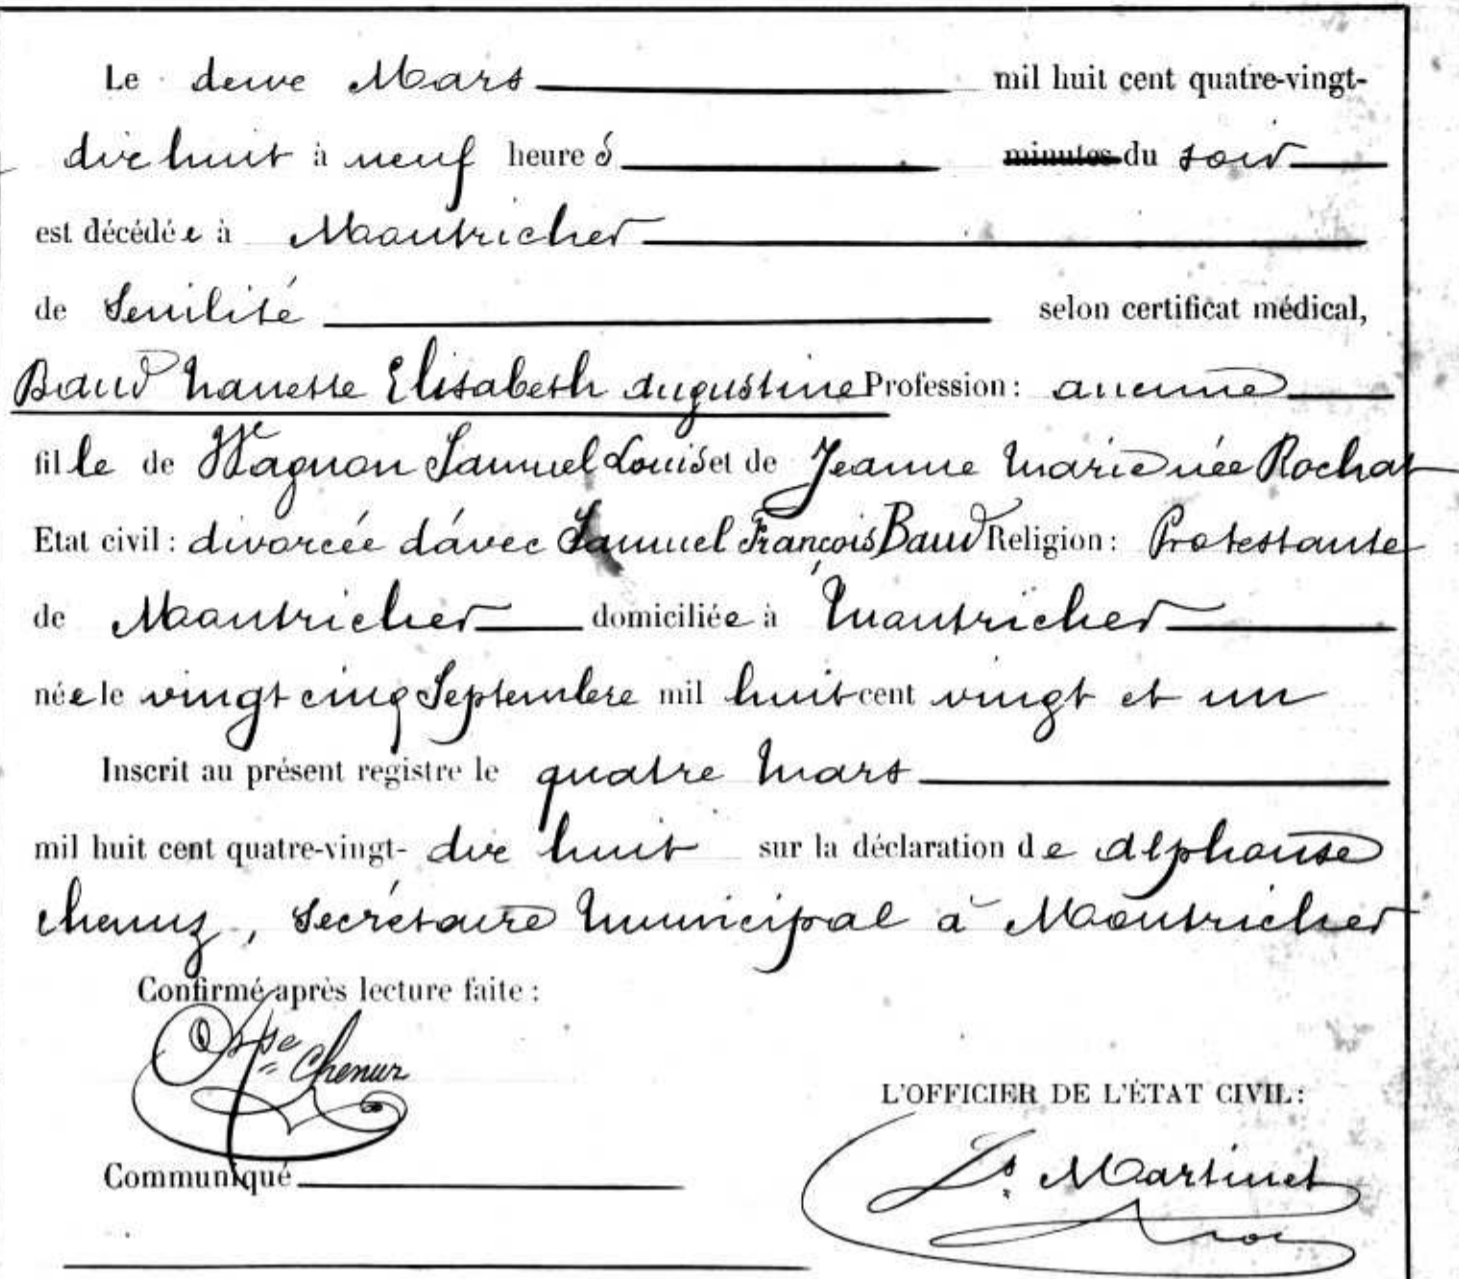 Le deux Mars mil huit cent quatre-vingt-
dix huit à neuf heures minutes du soir
est décédée à Montricher
de Sénilité selon certificat médical,
Baud Nanette Elisabeth Augustine Profession: aucune
fille de Wagnon Samuel Louis et de Jeanne Marie née Rochat
Etat civil: divorcée d'avec Samuel François Baud Religion: Protestante
de Montricher domiciliée à Montricher
née le vingt cinq Septembre mil huit cent vingt et un
Inscrit au présent registre le quatre Mars
mil huit cent quatre-vingt- dix huit sur la déclaration de Alphonse
Chenuz, Secrétaire Municipal à Montricher
Confirmé après lecture faite:
Chenuz
L'OFFICIER DE L'ÉTAT CIVIL:
Communiqué
Ls Martinet